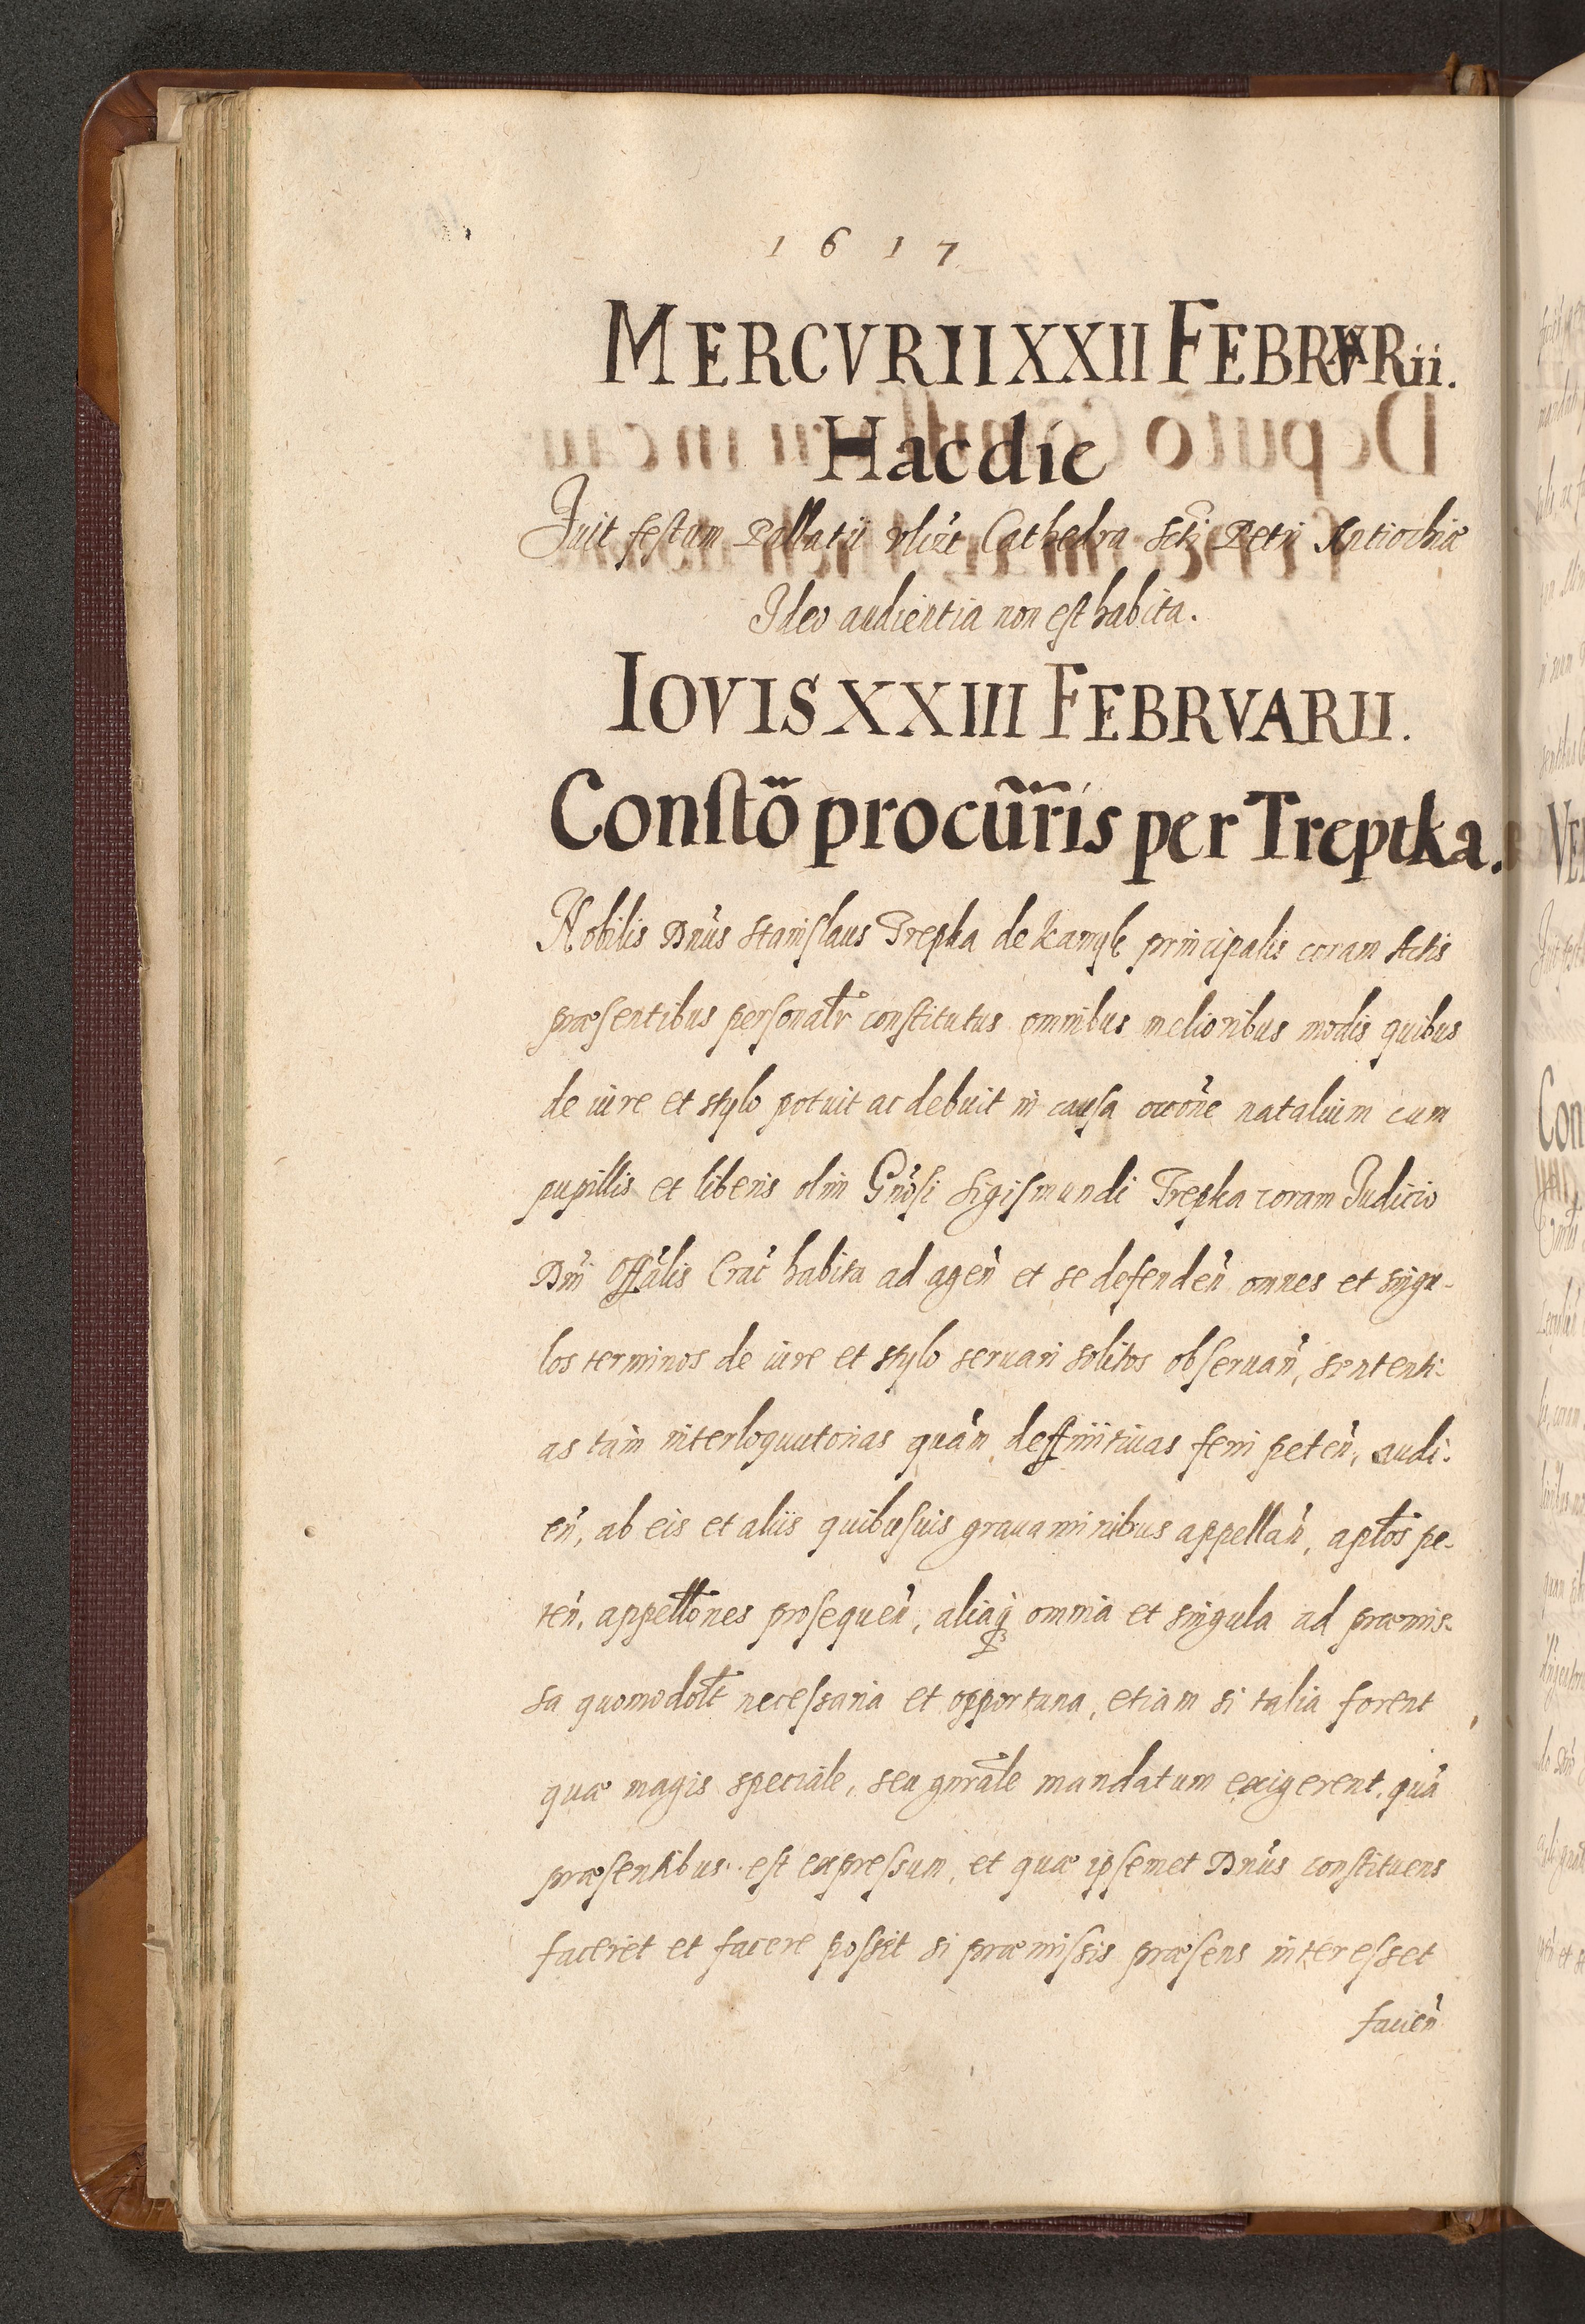 1617
MERCVRII XXII FEBRVARii.
Hac die
Fuit festum Pallatii vlizt Cathedra Scti Petri Antiochiæ
Ideo audientia non est habita.
IOVIS XXIII FEBRVARII.
Constõ procur̃is per Treptka.
Nobilis Dnus Stanislaus Trepka de principalis coram Actis
præsentibus personatr constitutus omnibus melioribus modis quibus
de iure et stylo potuit ac debuit in causa natalium cum
pupillis et liberis olim Gnosi Sigismundi Trepka coram Iudicio
Dni Offalis Crac habita ad agen et se defenden omnes et singu-
los terminos de iure et stylo seruari solitos obseruan, sententi-
as tam interloquutorias quàm deffinitiuas ferri peten, audi-
en, ab eis et aliis quibusuis grauaminibus appellan, aptos pe-
ten, appellones prosequen, aliaq omnia et singula ad præmis-
sa quomodolt necessaria et opportuna, etiam si talia forent
quæ magis speciale, seu gnrale mandatum exigerent, quã
præsentibus est expressum, et quæ ipsemet Dnus constituens
faceret et facere posset si præmissis præsens interesset
facien